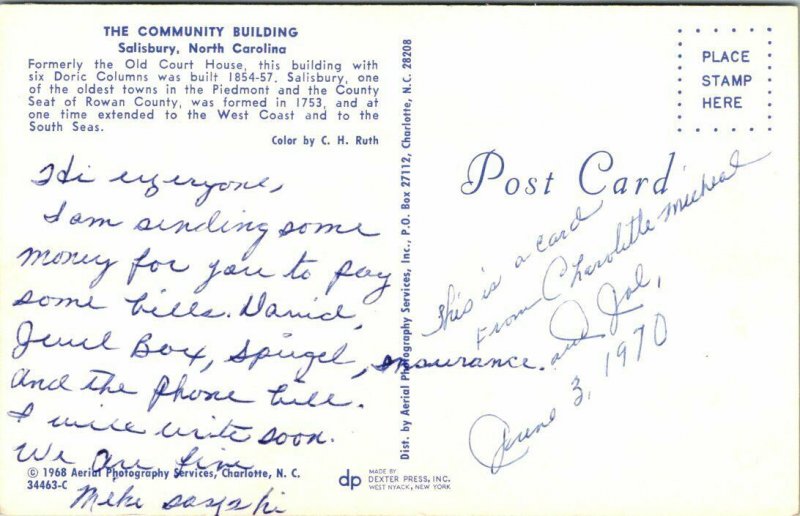 THE COMMUNITY BUILDING
Salisbury, North Carolina
Formerly the Old Court House, this building with
six Doric Columns was built 1854-57. Salisbury, one
of the oldest towns in the Piedmont and the County
Seat of Rowan County, was formed in 1753, and at
one time extended to the West Coast and to the
South Seas.
Color by C. H. Ruth
Hi everyone,
I am sending some
money for you to pay
some bills. David,
Jewel Box, Spigel, insurance.
and the Phone bill.
I will write soon.
We are fine
Mike says hi
© 1968 Aerial Photography Services, Charlotte, N. C.
34463-C
Dist. by Aerial Photography Services, Inc., P.O. Box 27112, Charlotte, N.C. 28208
dp
MADE BY
DEXTER PRESS, INC.
WEST NYACK, NEW YORK
PLACE
STAMP
HERE
Post Card
This is a card
from Charolitte Micheal
and Joe,
June 3, 1970